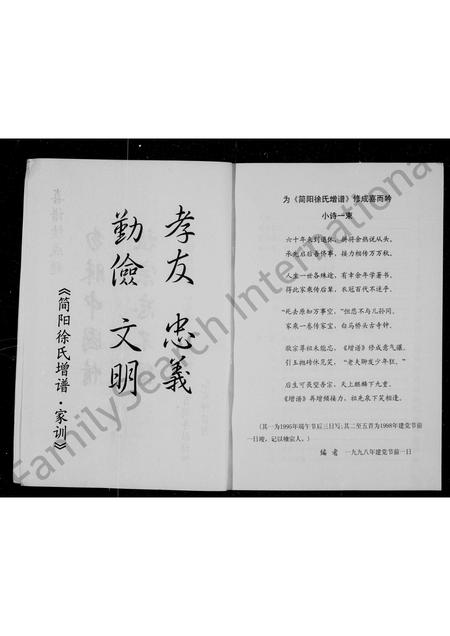 孝友 忠義
勤儉 文明
《简阳徐氏增谱·家训》
为《简阳徐氏增谱》修成喜而吟
小诗一束
六十年来到退休,拚将余热说从头。
承先启后吾侪事,接力相传万万秋。
人生一世各殊途,有幸余年学著书。
得此家乘传后辈,衣冠百代不迷乎。
“死去原知万事空,”但悲不与儿孙同。
家乘一卷传家宝,白马桥头古寺钟。
歌宗萃祖未能忘,《增谱》修成意气骧。
引玉抛砖休见笑,“老夫聊发少年狂。”
后生可畏望吾宗,天上麒麟下九重。
《增谱》再增倾接力,祖先泉下笑相逢。
(其一为1995年端午节后三日写;其二至五首为1998年建党节前
一日竣,记以飨宗人。)
编者 一九九八年建党节前一日
FamilySearch International